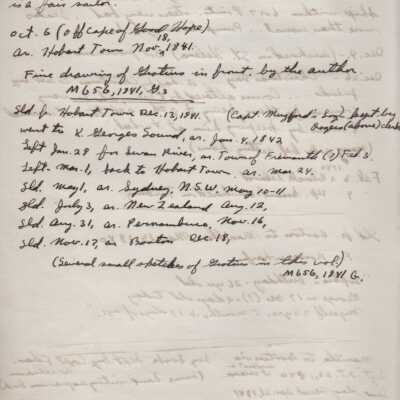 is a fair sailor.
Oct. 6 (Off cape of Good Hope)
Ar. Hobart Town Nov. 18, 1841.
Fine drawing of Grotius in front, by the author
M656, 1841, G.
Sld. fr. Hobart Town Dec. 13, 1841. (Capt. kept by
went to K. Georges Sound, ar. Jan. 4, 1842 Rogers (above) clerk
Left Jan. 28 for Swan River, ar. Town of Fremantle (?) Feb 3
Left Mar. 1, back to Hobart Town, ar. Mar. 24.
Sld. May 1, ar. Sydney, N.S.W. May 10-11
Sld. July 3, ar. New Zealand Aug. 12,
Sld. Aug. 31, ar. Pernambuco, Nov. 16,
Sld. Nov. 17, ar. Boston Dec. 18,
(Several small sketches of Grotius in this vol.)
M656, 1841 G.